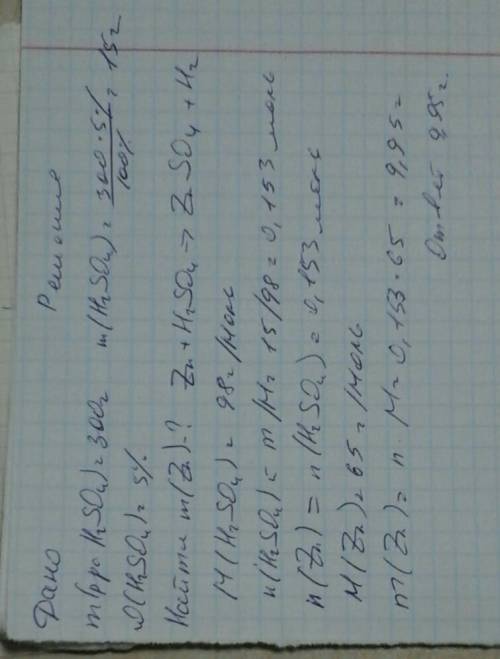 Дано Решение
m(р-ра H₂SO₄) = 300г m(H₂SO₄) = 300 · 5% / 100% = 15г
ω(H₂SO₄) = 5%
Найти m(Zn)-? Zn + H₂SO₄ → ZnSO₄ + H₂
M(H₂SO₄) = 98г/моль
n(H₂SO₄) = m/M = 15/98 = 0,153 моль
n(Zn) = n(H₂SO₄) = 0,153 моль
M(Zn) = 65г/моль
m(Zn) = n · M = 0,153 · 65 = 9,95г
Ответ 9,95г.